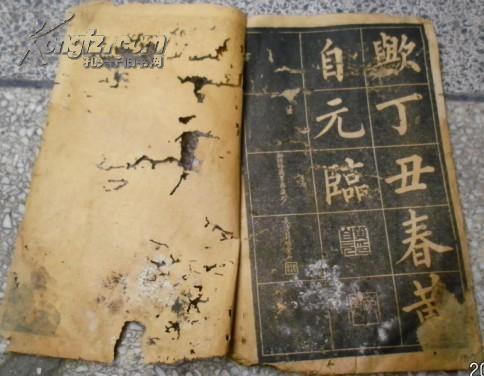 歟丁丑春黄
自元臨
Kongfz.com
孔夫子旧书网
20